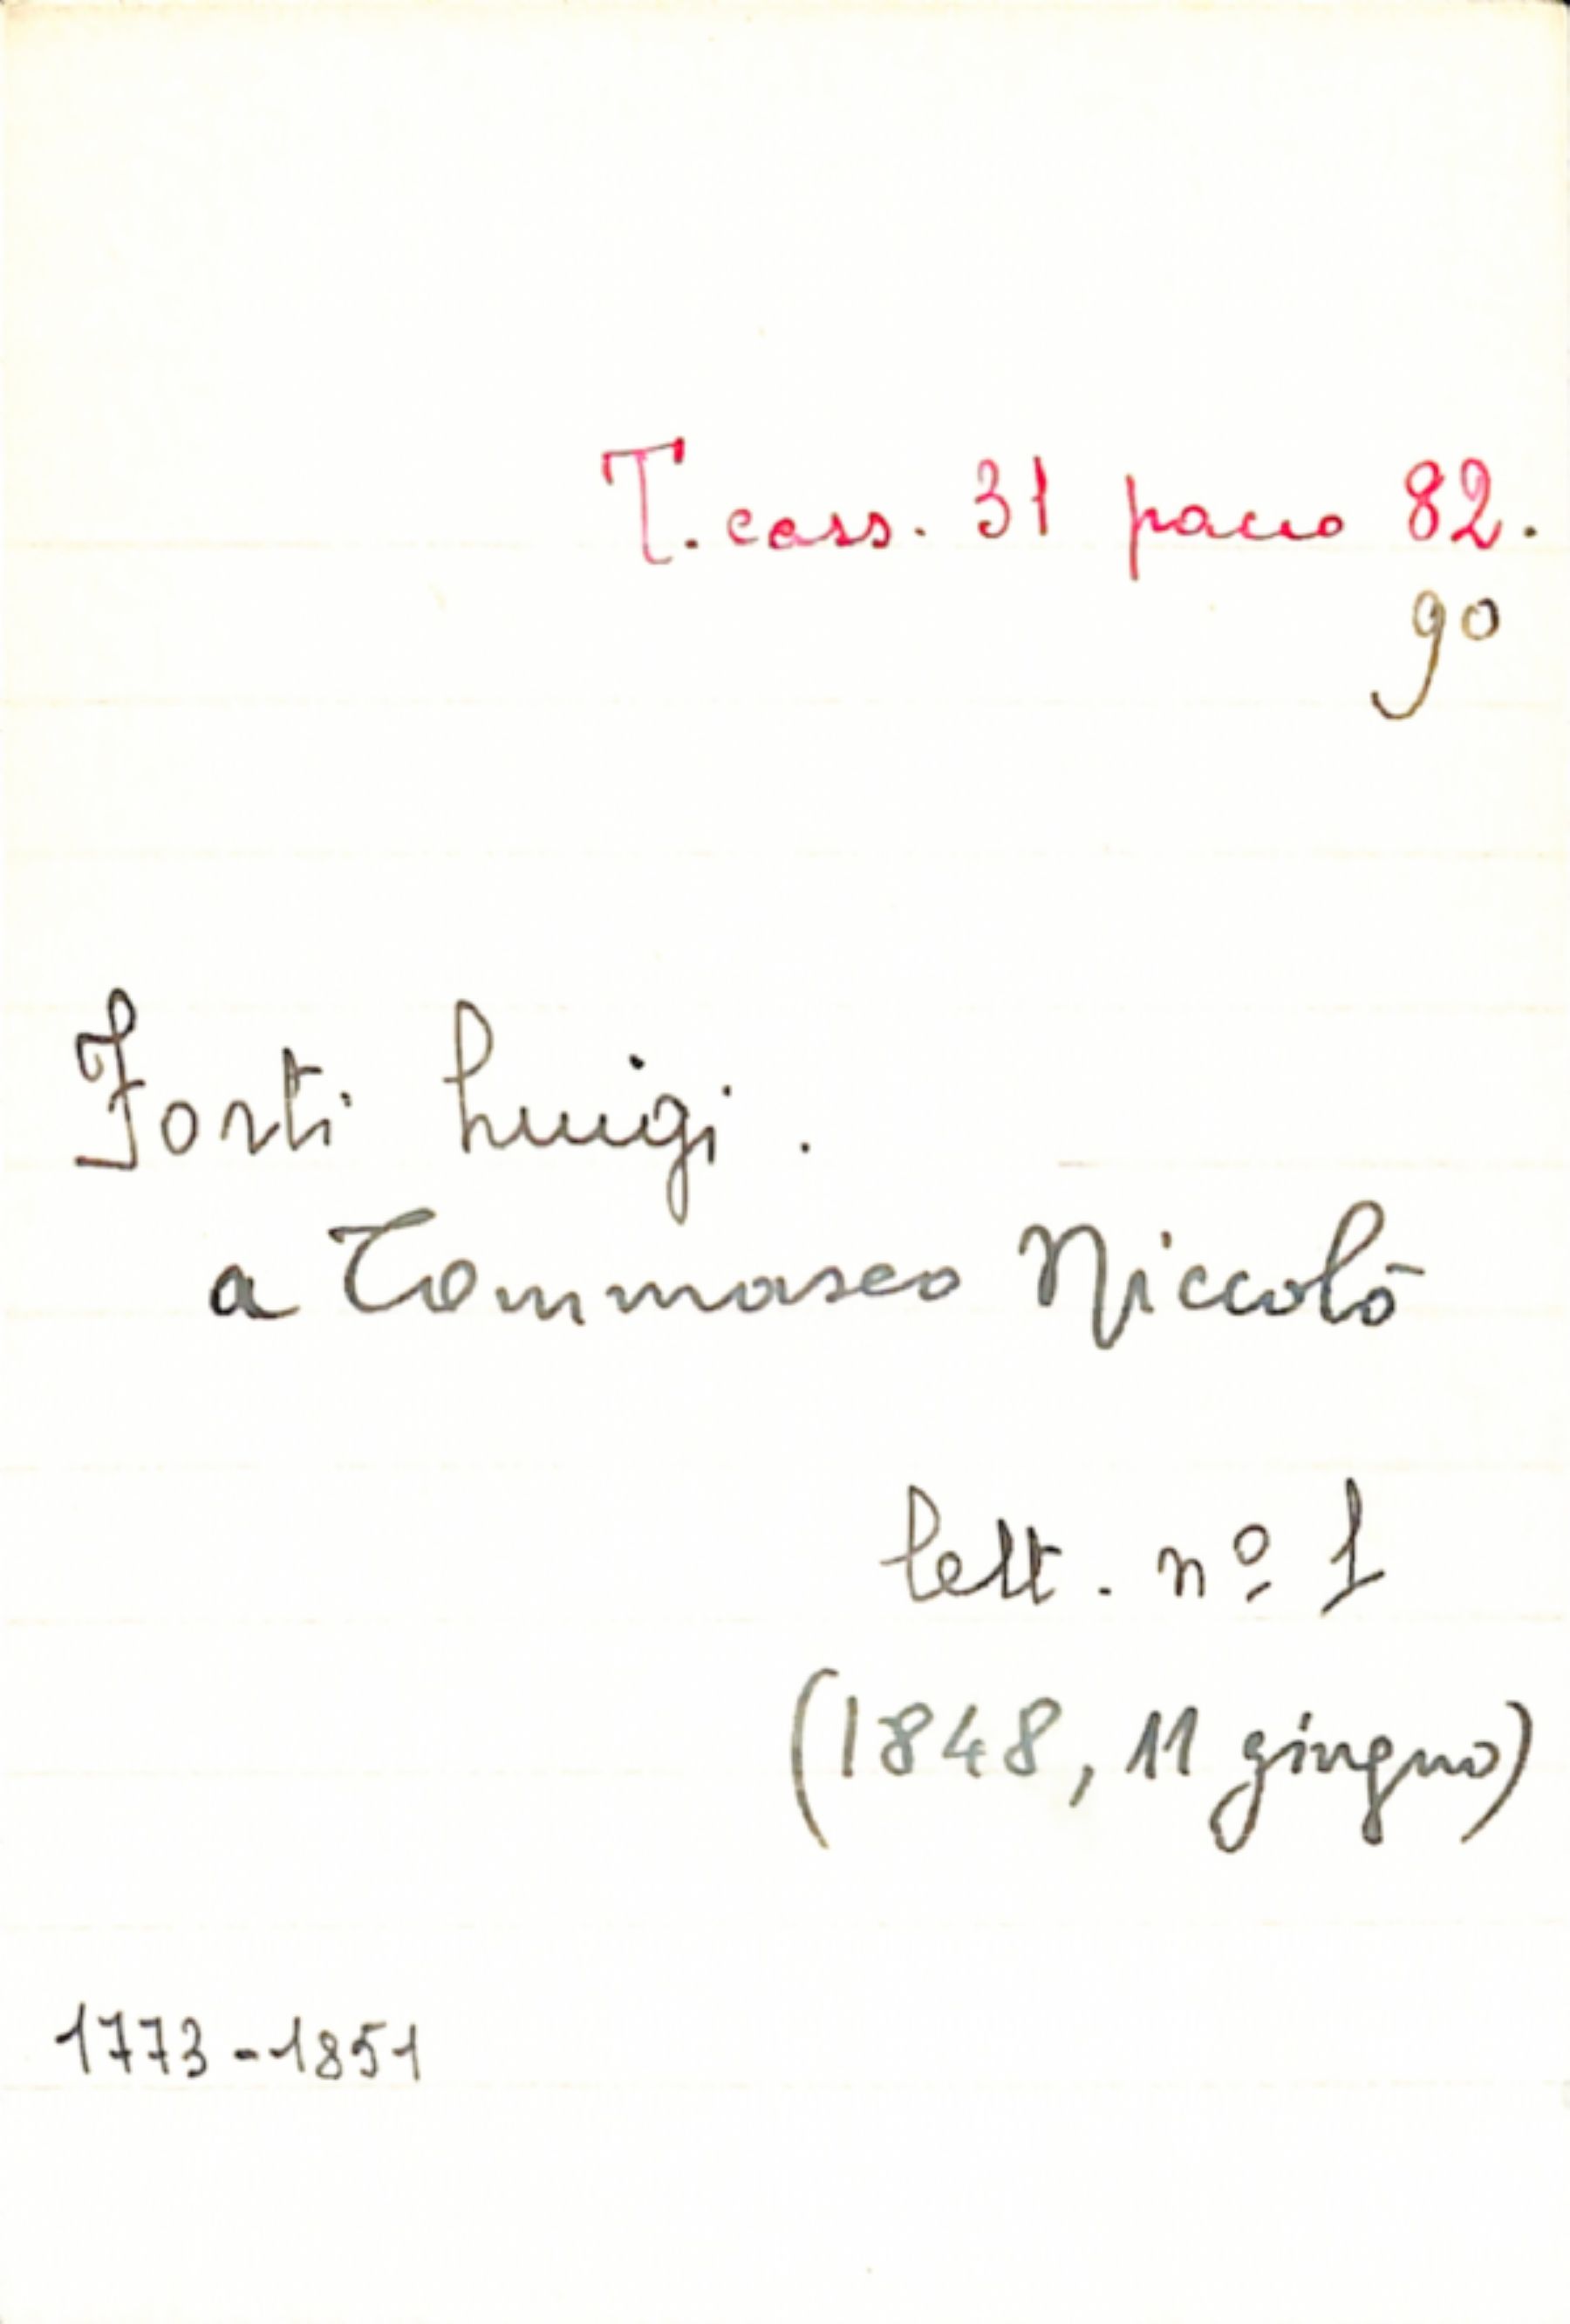 T. cass. 31 pacco 82.
90
Forti Luigi.
a Tommaseo Niccolò
lett. nº 1
(1848, 11 giugno)
1773-1851